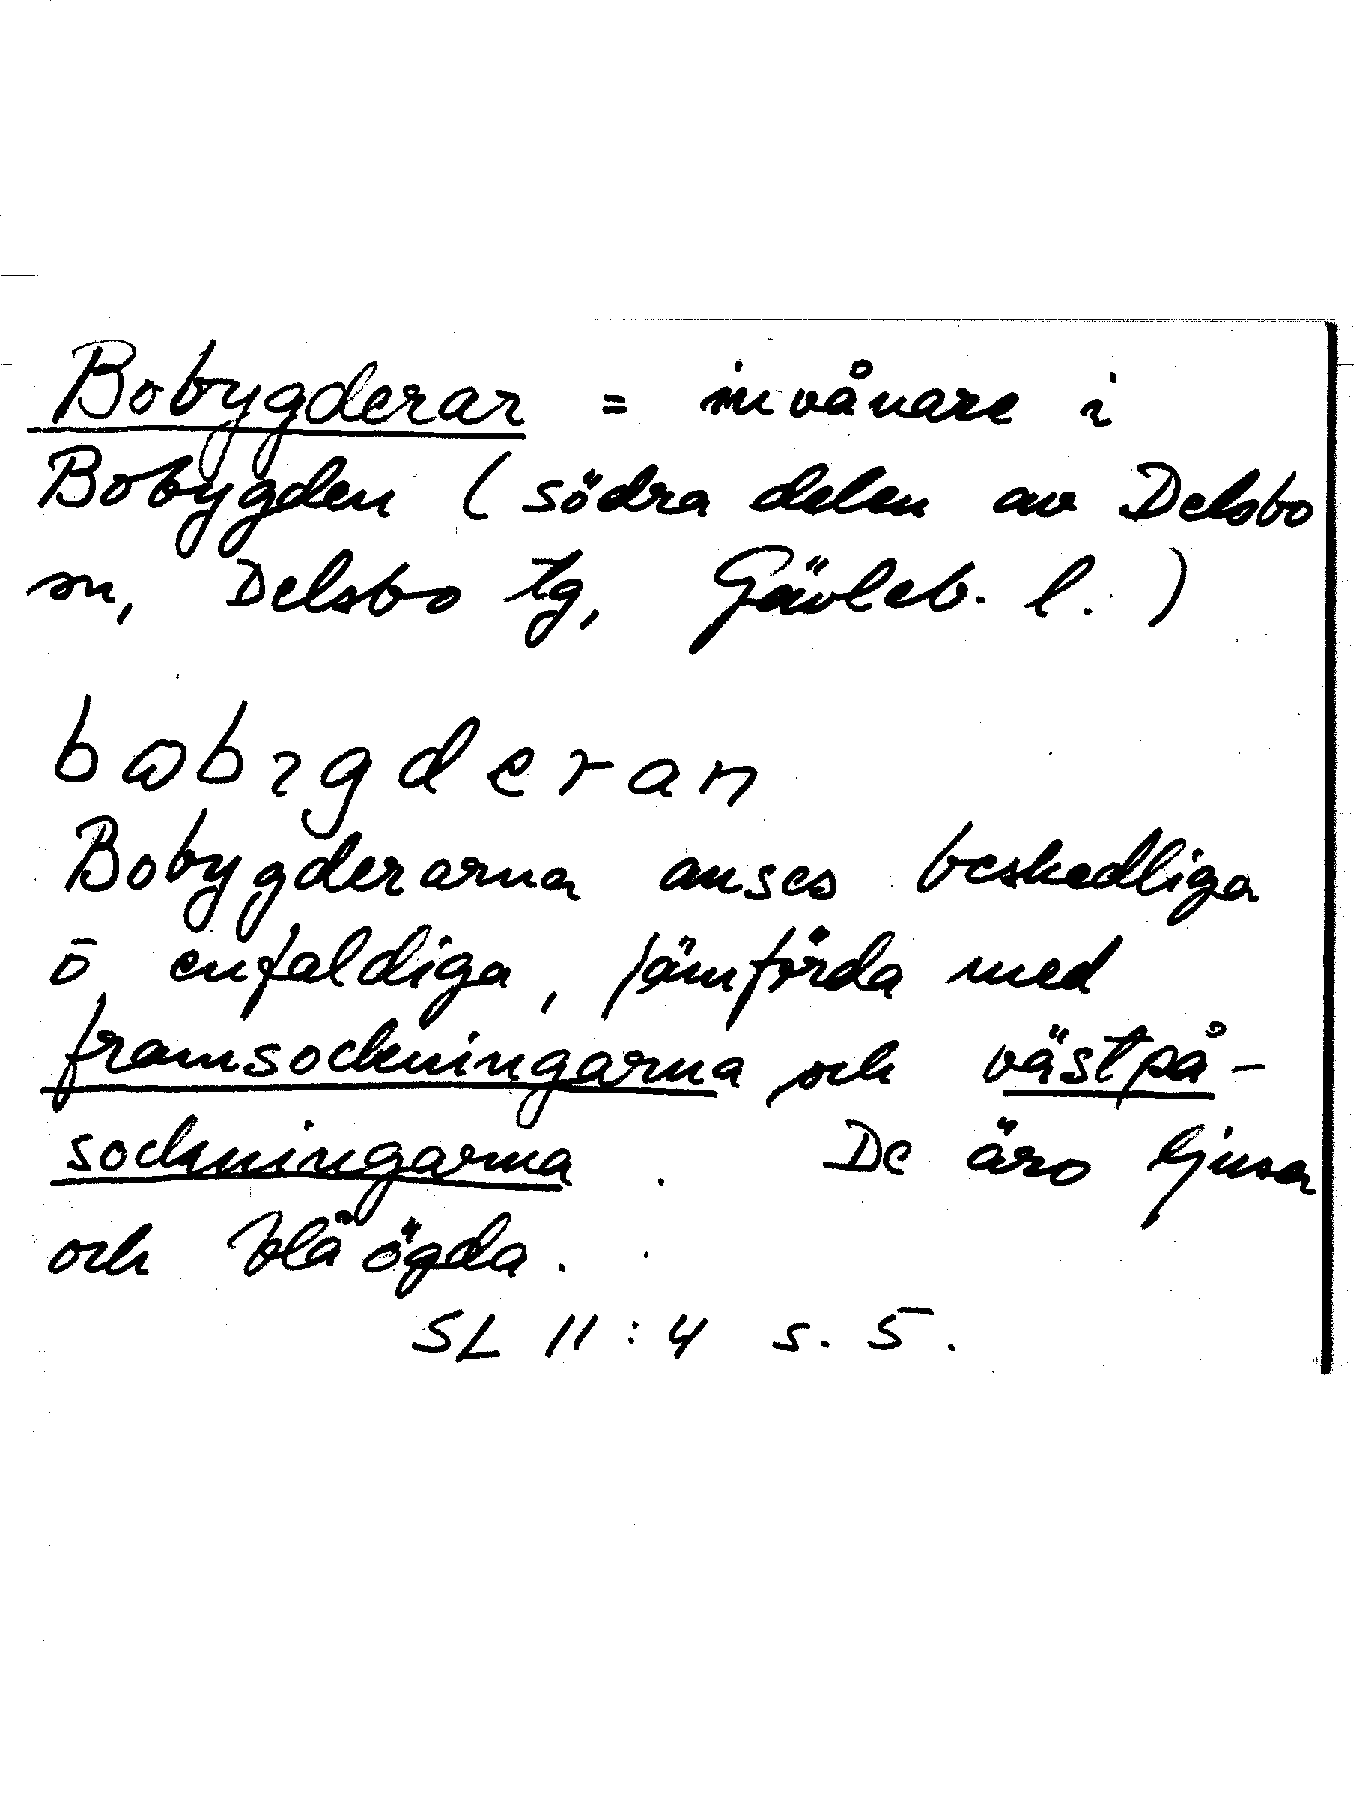 Bobygderar = invånare i
Bobygden (södra delen av Delsbo
sn, Delsbo tg, Gävleb. l.)
bωb२gderan
Bobygderarna anses beskedliga
ō enfaldiga, jämförda med
framsockningarna och västpå-
sockningarna. De äro ljusa
och blåögda.
SL 11:4 s. 5.